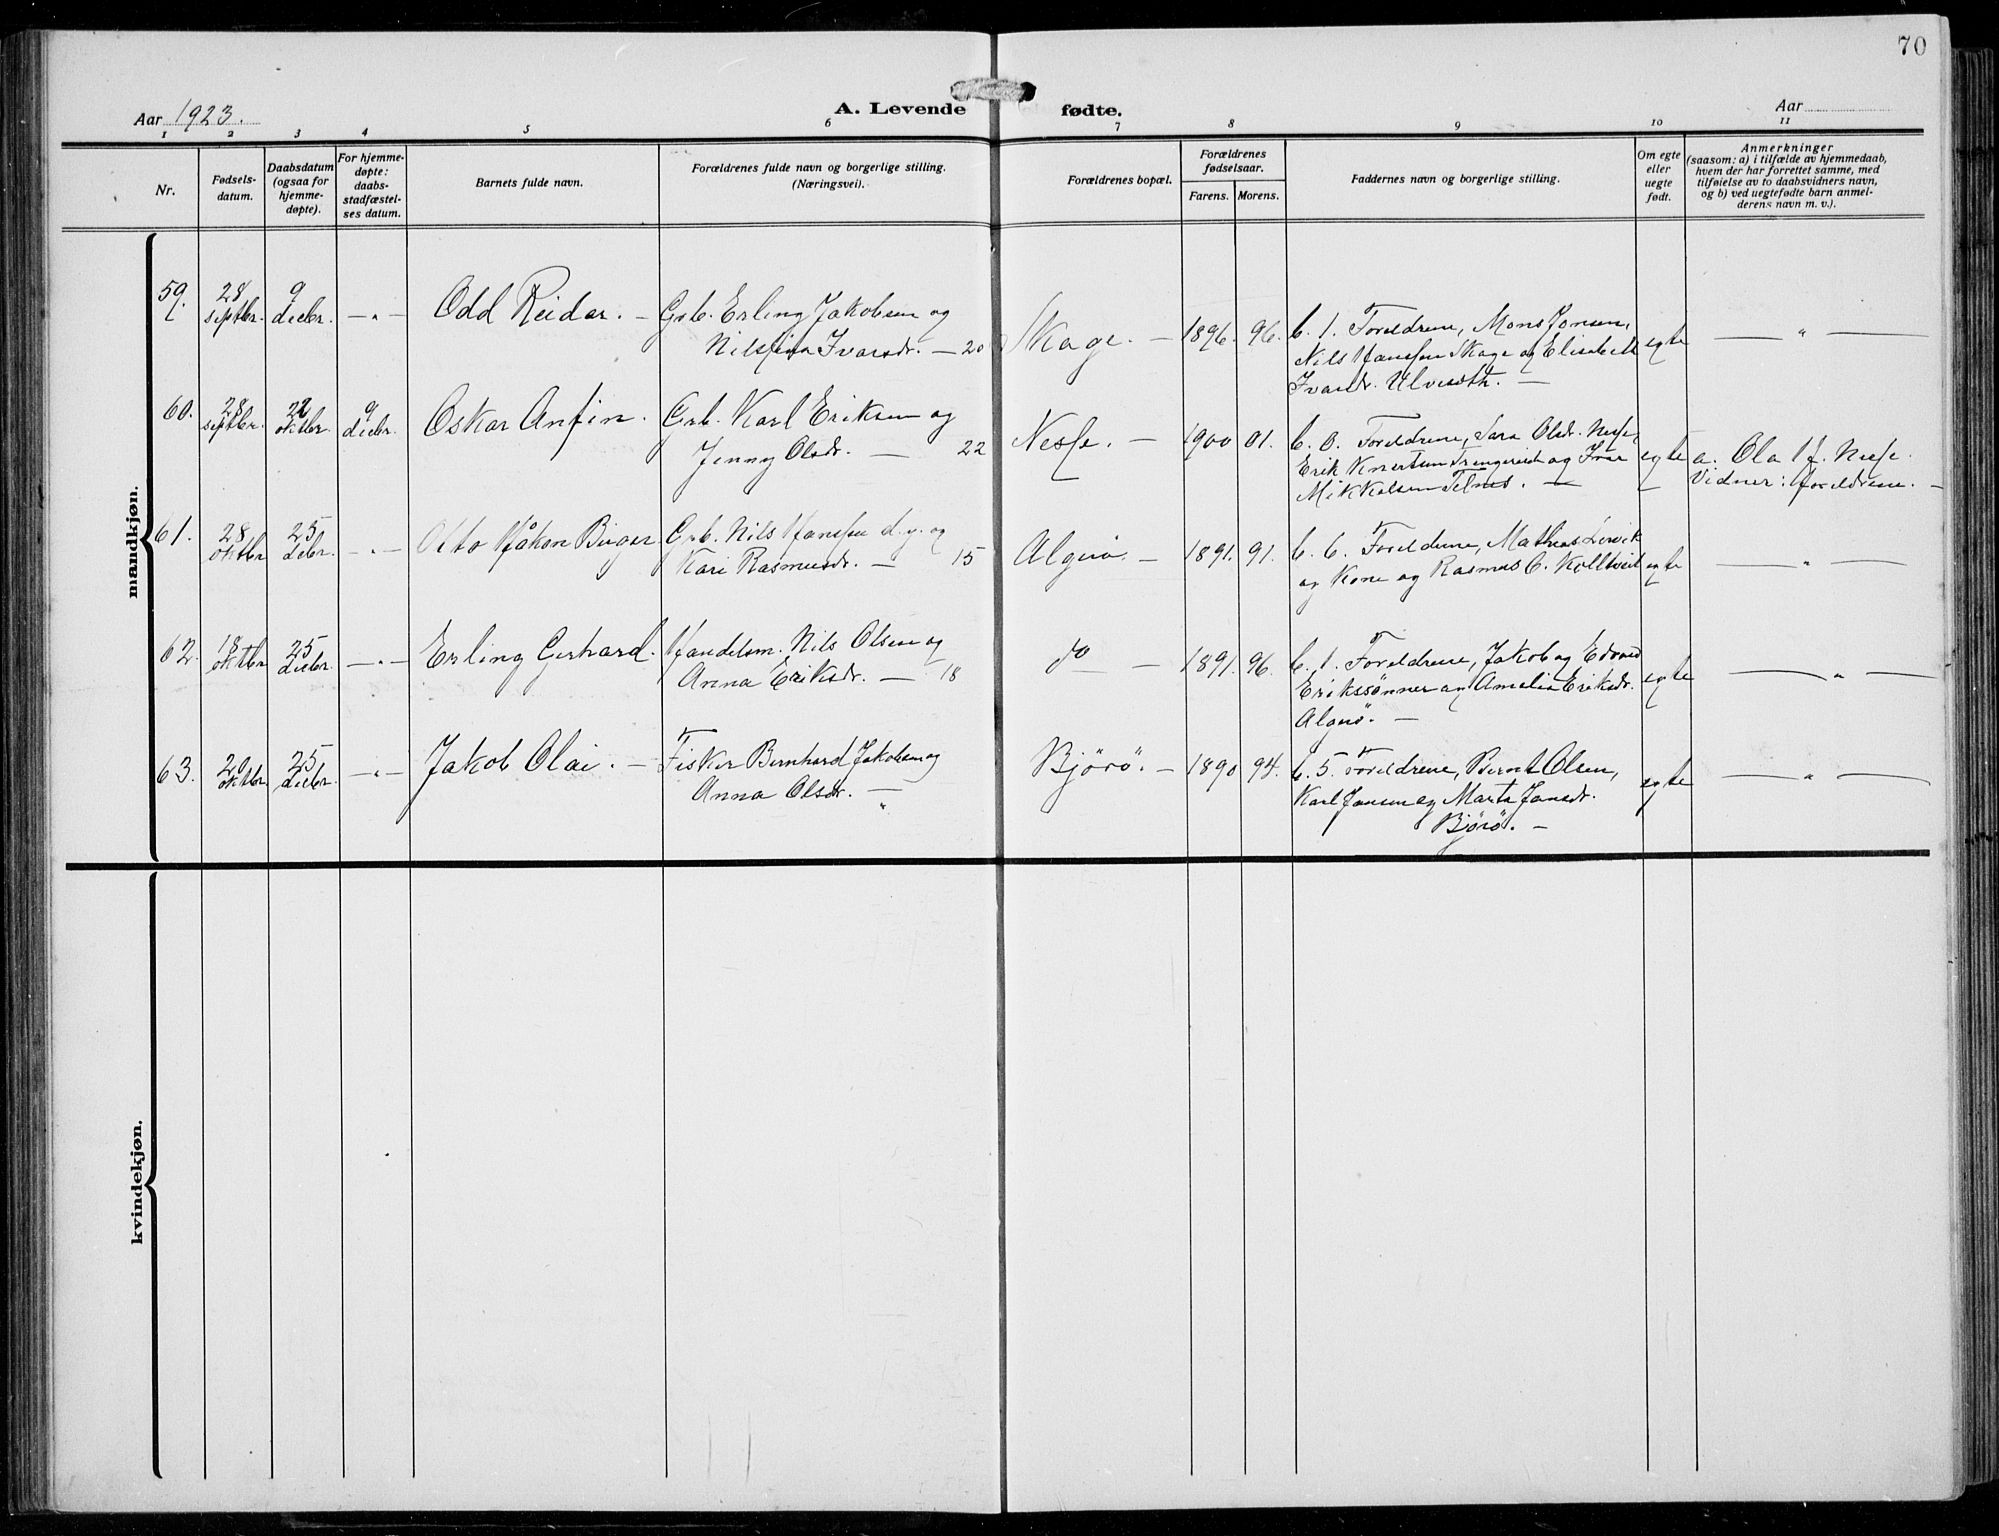 70
Aar 1923.
A. Levende fødte.
Aar
1 2 3 4 5 6 7 8 9 10 11
Nr.
Fødsels-
datum.
Daabsdatum
(ogsaa for
hjemme-
døpte).
For hjemme-
døpte:
daabs-
stadfæstel-
ses datum.
Barnets fulde navn.
Forældrenes fulde navn og borgerlige stilling.
(Næringsvei).
Forældrenes bopæl.
Forældrenes
fødselsaar.
Farens. Morens.
Faddernes navn og borgerlige stilling.
Om egte
eller
uegte
født.
Anmerkninger
(saasom: a) i tilfælde av hjemmedaab,
hvem der har forrettet samme, med
tilføielse av to daabsvidners navn,
og b) ved uegtefødte barn anmel-
derens navn m. v.).
mandkjøn.
59. 28 septbr. 9 decbr. — „ — Odd Reidar. — Grb. Erling Jakobsen og
Nilsina Ivarsdr. — 20
Skage. — 1896. 96.
b. 1. Foreldrene, Mons Jonsen,
Nils Hansen Skage og Elisabeth
Ivarsdr. —
egte — „ —
60. 28 septbr. 22 oktbr. 9 decbr. Oskar Anfin. Grb. Karl Eriksen og
Jenny Olsdr. — 22
Nesse. — 1900 01.
b. 0. Foreldrene, Sara Olsdr. Nesse,
Erik Knertsen og Ivar
Mikkelsen Telnes. —
egte a. Ola Hf. Nesse.
Vidner: foreldrene. —
61. 28 oktbr 25 decbr. — „ — Otto Håkon Birger Grb. Nils Hansen d. y. og
Kari Rasmusdr. — 15
Algrø. — 1891. 91.
b. 6. Foreldrene, Mathias Lervik
og Kone og Rasmus C. Kolltveit
egte — „ —
62. 18 oktbr 25 decbr. — „ — Erling Gerhard. Handelsm. Nils Olsen og
Anna Eriksdr. — 18
do — 1891. 96.
b. 1. Foreldrene, Jakob og Edvard
Erikssønner og Amalia Eriksdr.
Algrø. —
egte — „ —
63. 20 oktbr 25 decbr. — „ — Jakob Olai. — Fisker Bernhard Jakobsen og
Anna Olsdr. — „
Bjørø. — 1890 94.
b. 5. Foreldrene, Bernt Olsen,
Karl Jansen og Marta Jansdr.
Bjørø. —
egte — „ —
kvindekjøn.